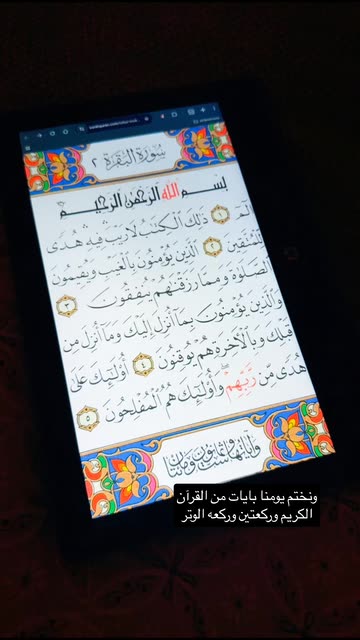 سورة البقرة ٢
بسم الله الرحمن الرحيم
الٓمٓ ١ ذَٰلِكَ ٱلْكِتَٰبُ لَا رَيْبَ فِيهِ هُدًى
لِّلْمُتَّقِينَ ٢ ٱلَّذِينَ يُؤْمِنُونَ بِٱلْغَيْبِ وَيُقِيمُونَ
ٱلصَّلَوٰةَ وَمِمَّا رَزَقْنَٰهُمْ يُنفِقُونَ ٣
وَٱلَّذِينَ يُؤْمِنُونَ بِمَآ أُنزِلَ إِلَيْكَ وَمَآ أُنزِلَ مِن
قَبْلِكَ وَبِٱلْـَٔاخِرَةِ هُمْ يُوقِنُونَ ٤ أُو۟لَٰٓئِكَ عَلَىٰ
هُدًى مِّن رَّبِّهِمْ وَأُو۟لَٰٓئِكَ هُمُ ٱلْمُفْلِحُونَ ٥
وآياتها ستٌّ وثمانون ومائتان
ونختم يومنا بايات من القرآن
الكريم وركعتين وركعه الوتر